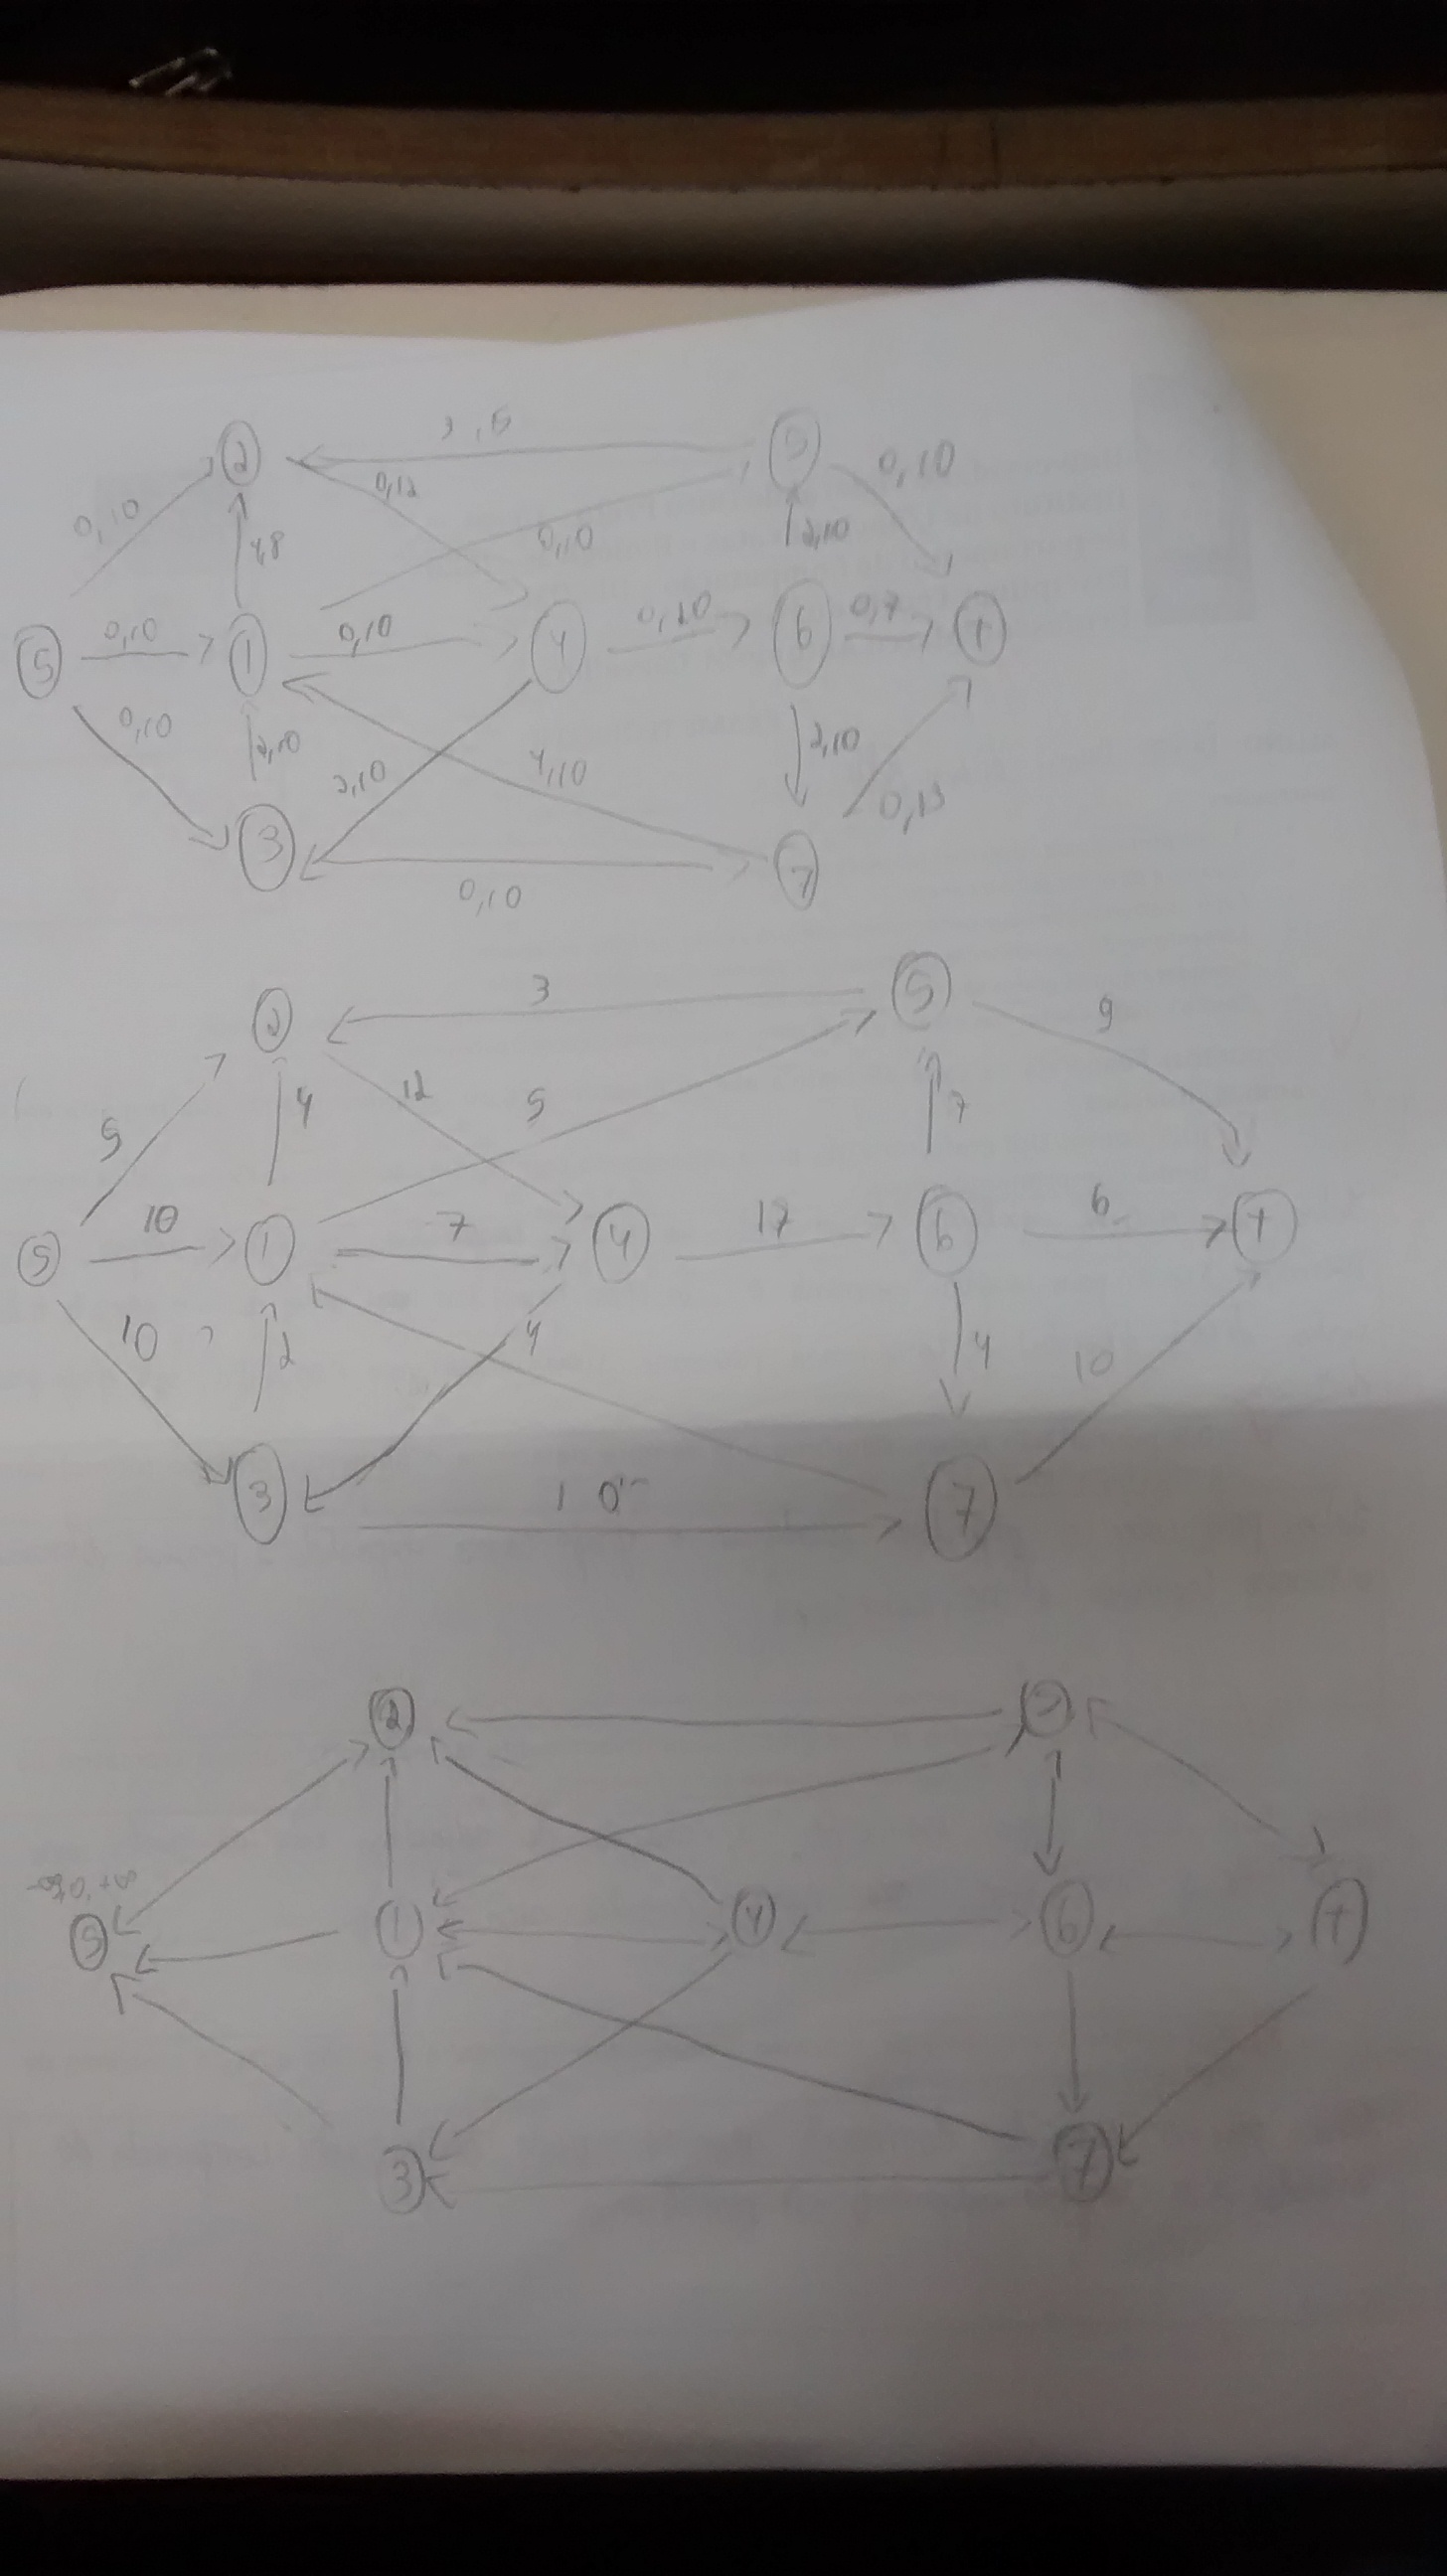 2 3,6 5 0,10
0,10 0,12
4,8 0,10 2,10
S 0,10 1 0,10 4 0,20 6 0,7 t
0,10 2,10 2,10 4,10 2,10
3 0,10 7 0,13
2 3 5 9
5 4 12 5 7
S 10 1 7 4 17 6 6 t
10 2 4 4 10
3 10 7
2
S 1 4 6 t
3 7